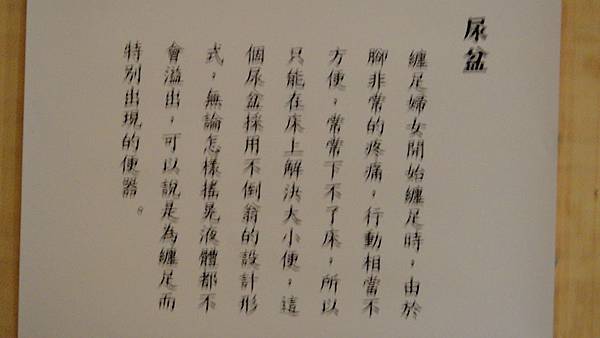 尿盆
纏足婦女開始纏足時，由於
腳非常的疼痛，行動相當不
方便，常常下不了床，所以
只能在床上解決大小便，這
個尿盆採用不倒翁的設計形
式，無論怎樣搖晃液體都不
會溢出，可以說是為纏足而
特別出現的便器。